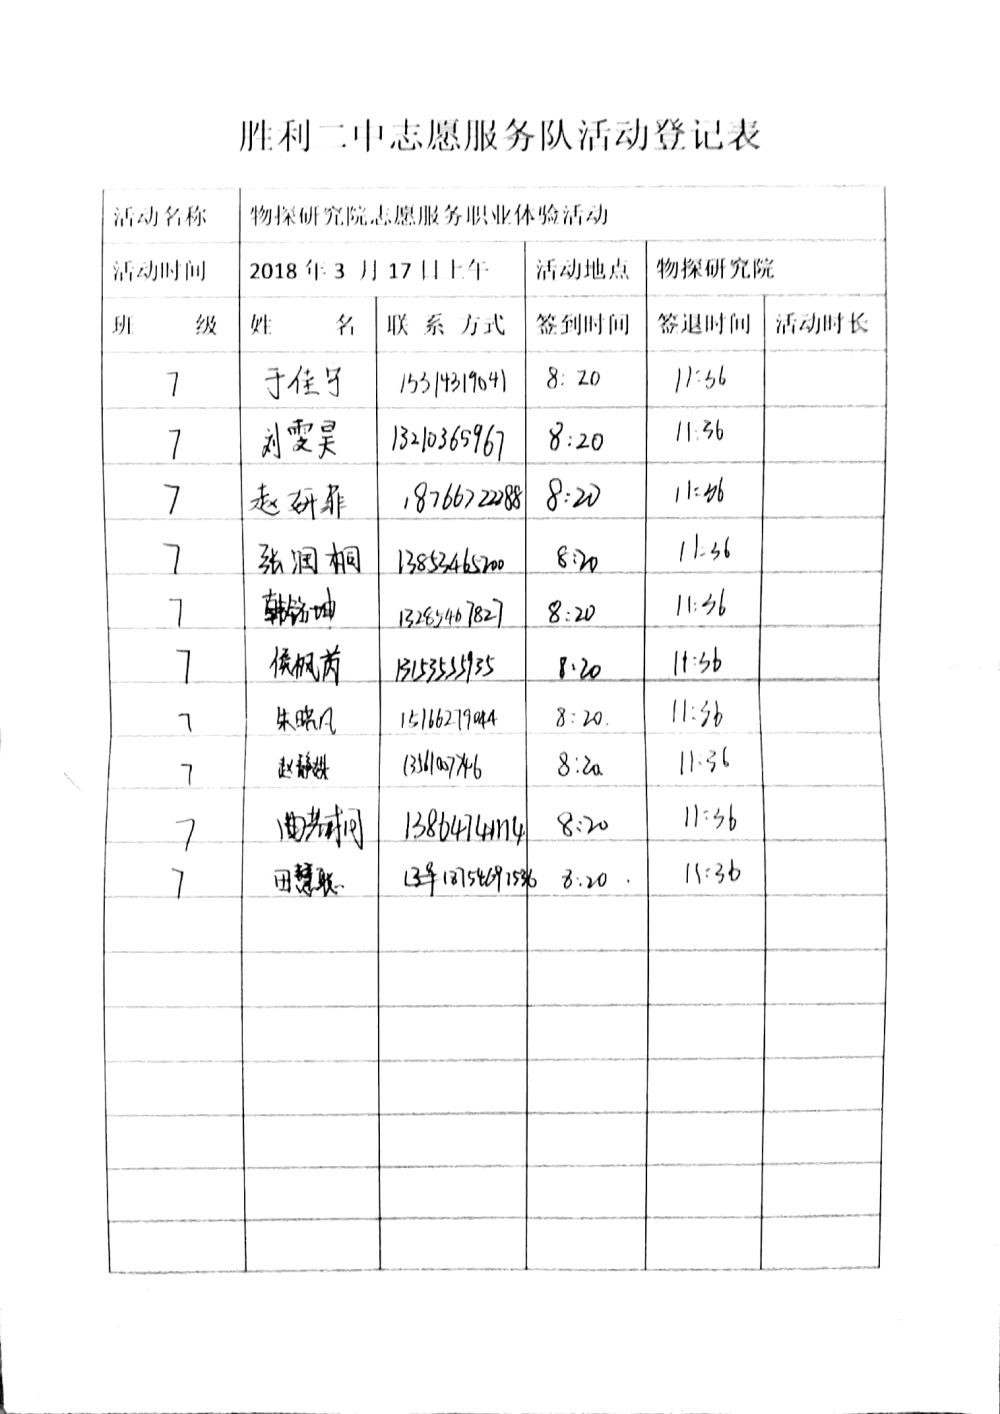 胜利二中志愿服务队活动登记表
活动名称 物探研究院志愿服务职业体验活动
活动时间 2018 年 3 月 17 日上午 活动地点 物探研究院
班 级 姓 名 联 系 方式 签到时间 签退时间 活动时长
7 于佳宁 15314319041 8:20 11:36
7 刘雯昊 13210365967 8:20 11:36
7 赵妍菲 18766722288 8:20 11:36
7 张润桐 13853465200 8:20 11:36
7 韩铭坤 13285467827 8:20 11:36
7 侯枫芮 13153555935 8:20 11:36
7 朱晓凡 15166279044 8:20. 11:36
7 赵静姝 8:20 11:36
7 8:20 11:36
7 田慧聪 8:20. 11:36